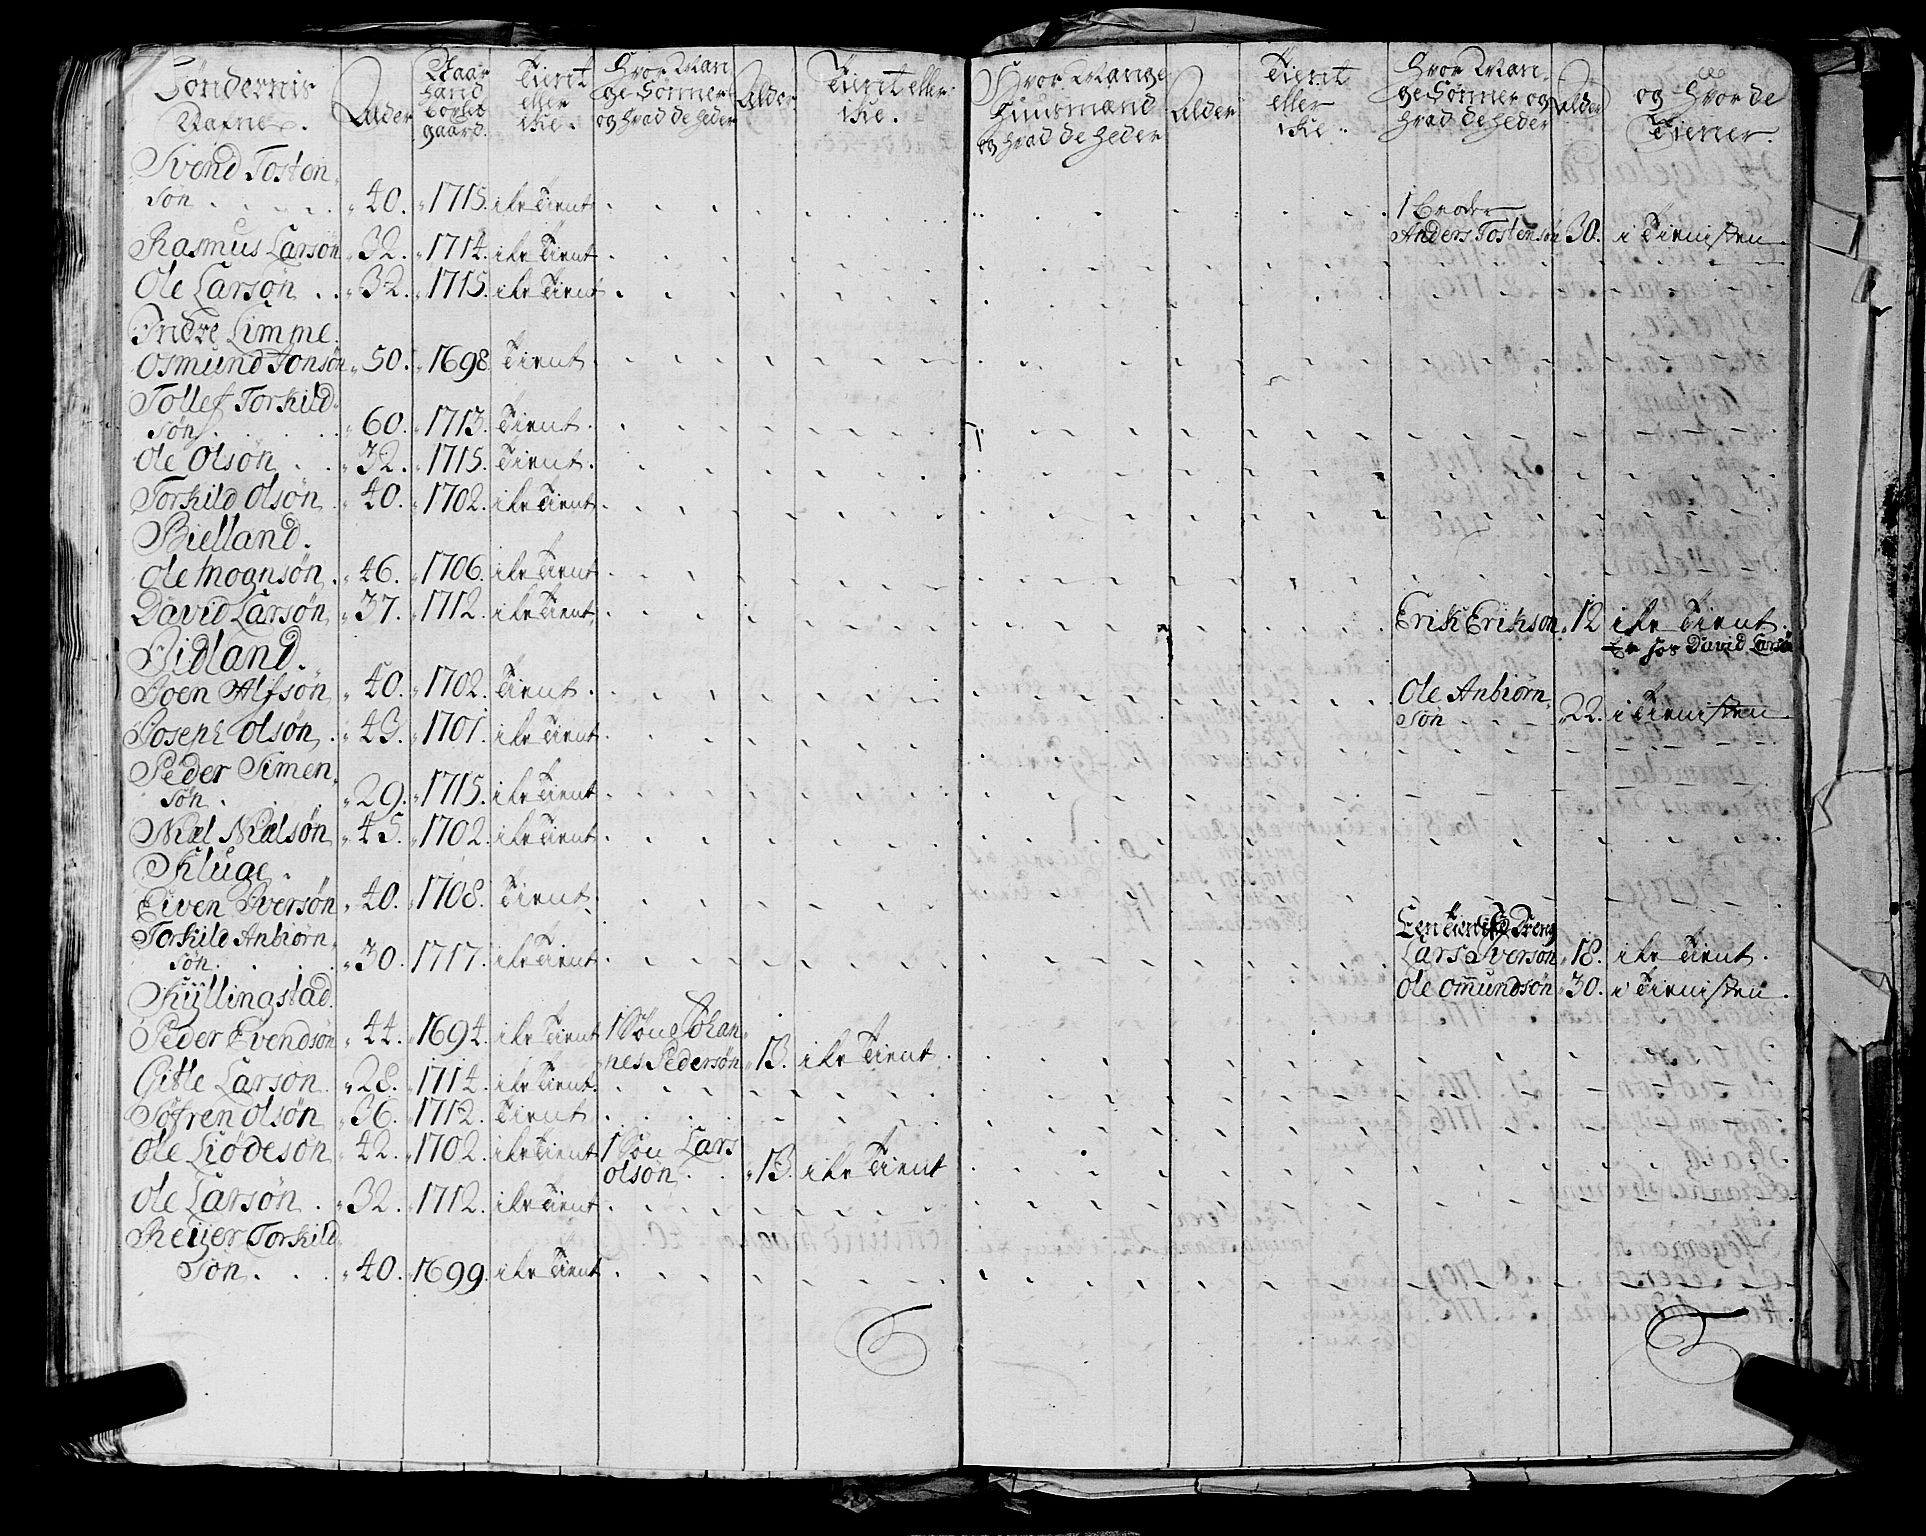 Bøndernis
Nafne.
Alder
Naar
hand
boxlet
gaard.
Tient
eller
ike.
Hvor Man
ge Sønner
og hvad de heder
Alder
Tient eller
ike.
Hvor Mange
Huusmænd
og hvad de heder
Alder
Tient
eller
ike.
Hvor Man
ge Sønner og
hvad de heder
Alder
og Hvor de
Tiener.
Svend Tosten
søn . . . . 40. 1715. ike Tient
1 Broder
Anders Tostensøn 30. i Tienisten
Rasmus Larsøn 32. 1714. ike Tient
Ole Larsøn . . 32. 1715. ike Tient
Indre Limme.
Osmund Jonsøn 50. 1698 Tient
Tollef Torkild
søn . . . 60. 1713. Tient.
Ole Olsøn . . 32. 1715. Tient.
Torkild Olsøn 40. 1702. ike Tient
Bielland.
Ole Mognsøn . 46. 1706. ike Tient
David Larsøn 37. 1712. ike Tient
Erik Erikson 12 ike Tient.
er hos David Larsøn
Aidland.
Joen Alfsøn 40. 1702. Tient
Ole Anbiørn
søn 22. i Tienisten
Joseph Olsøn . 43. 1701. ike Tient
Peder Simen
søn . 29. 1715. ike Tient
Niæl Niælsøn 45. 1702. ike Tient
Kluge.
Eiven Iversøn 40. 1708. Tient
Een Tieniste Dreng
Torkild Anbiørn
søn . . . 30. 1717. ike Tient
Lars Iversøn 18. ike Tient.
Kyllingstad.
Ole Omundsøn 30. i Tienisten.
Peder Evendsøn 44. 1694. ike Tient 1 Søn Johan
nes Pedersøn 13. ike Tient
Gitle Larson 28. 1714. ike Tient.
Søfren Olsøn 36. 1712. Tient
Ole Liødesøn 42. 1702. ike Tient 1 Søn Lars
olson . . 13. ike Tient
Ole Larsøn . 32. 1712. ike Tient
Reijer Torkild
søn . . . 40. 1699. ike Tient